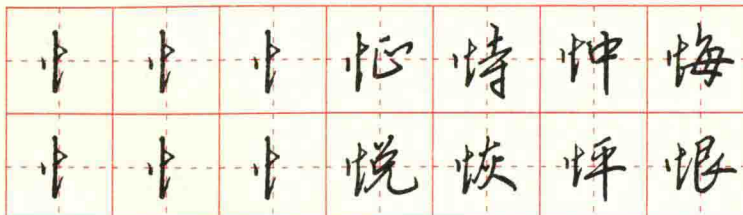 忄忄忄怔恃忡悔
忄忄忄悦恢怦恨